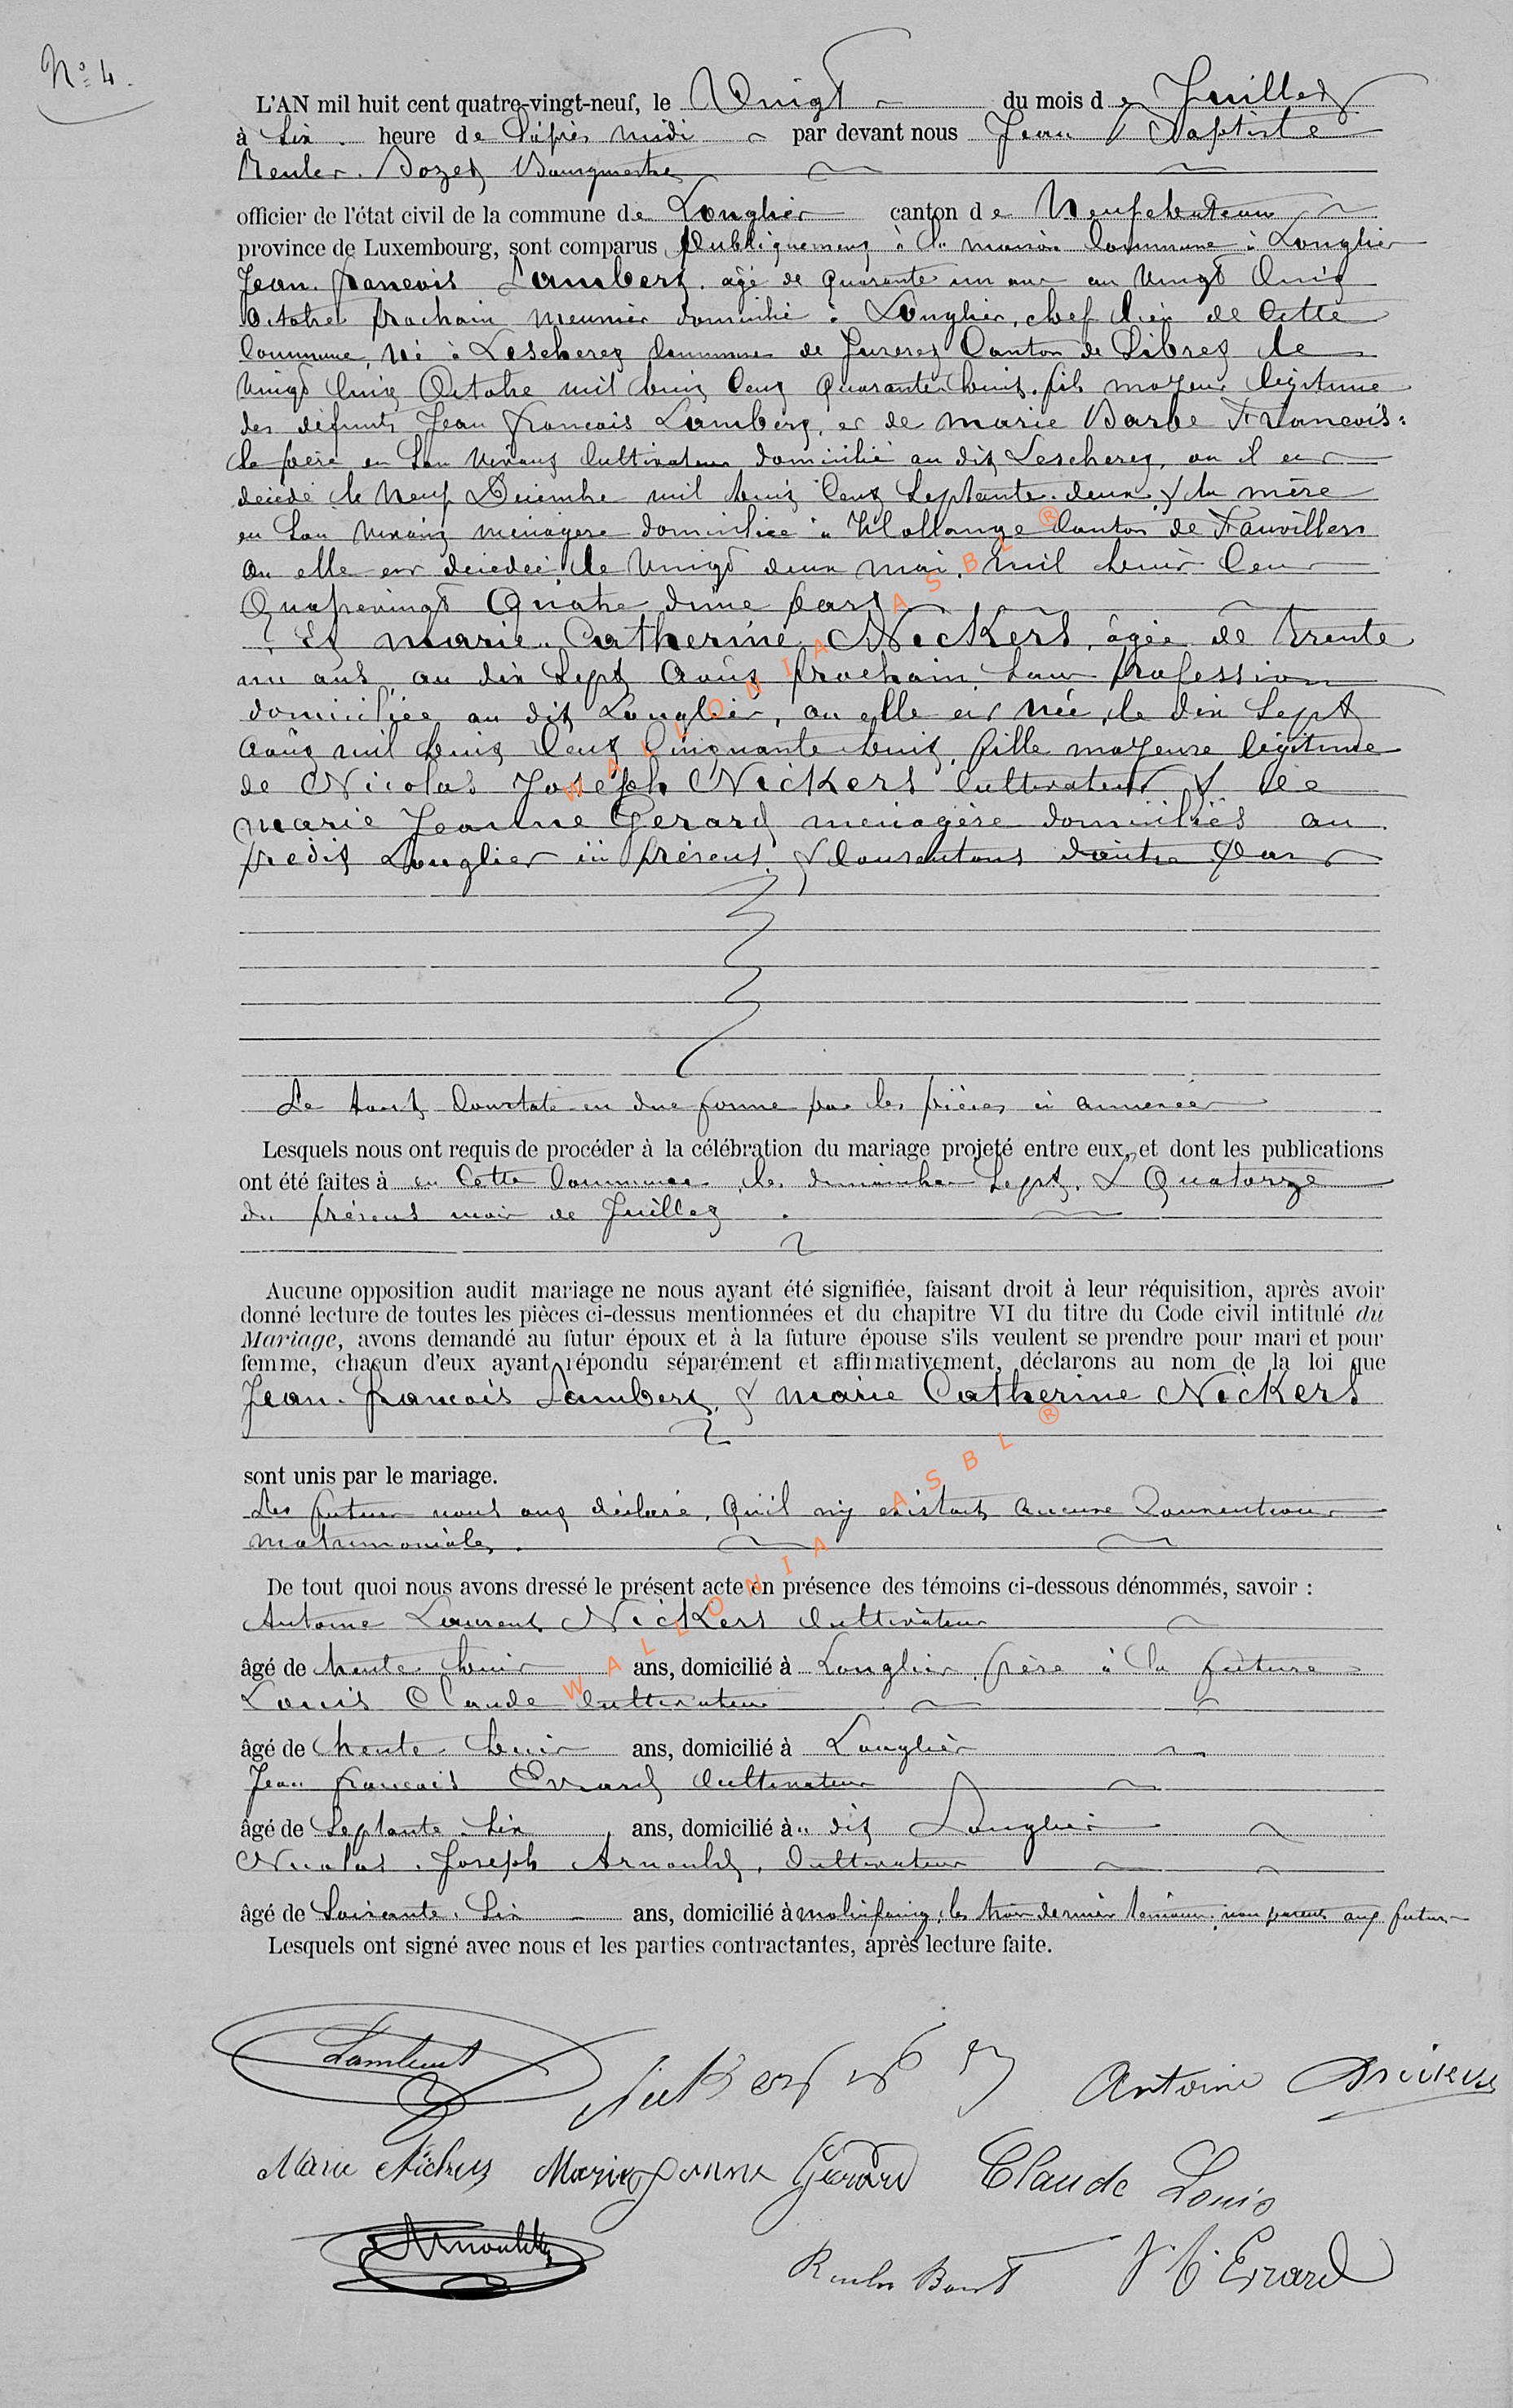 N° 4.
L'AN mil huit cent quatre-vingt-neuf, le Vingt du mois de Juillet
à six heure de l'après midi par devant nous Jean Baptiste
Reuler. Dozet Bourgmestre
officier de l'état civil de la commune de Longlier canton de Neufchateau
province de Luxembourg, sont comparus publiquement à la maison Commune à Longlier
Jean. francois Lambert. agé de quarante un ans au Vingt huit
Octobre prochain meunier domicilié à Longlier, chef lieu de Cette
Commune, né à Lescheret Commune de Juseret Canton de Sibret le
Vingt huit Octobre mil huit Cent Quarante huit. fils majeur légitime
des défunts Jean francois Lambert, et de marie Barbe Francois:
le père en son vivant Cultivateur domicilié au dit Lescheret, ou il est
décédé le Neuf Décembre mil huit Cent Septante. deux & la mère
en son vivant ménagère domiciliée à Hollange Canton de Fauvillers
ou elle est décédée le Vingt deux mai. mil huit Cent
Quatrevingt Quatre d'une part
Et marie. Catherine Nickers, âgée de trente
un ans au dix Sept Août prochain sans profession
domiciliée au dit Longlier, ou elle est née, le dix Sept
Août mil huit Cent Cinquante huit, fille majeure légitime
de Nicolas Joseph Nickers Cultivateur & de
marie Jeanne Gerard ménagère domiciliés au
predit Longlier ici présent & Consentans d'autre part
Le tout Constaté en due forme par les pièces ci annexées
Lesquels nous ont requis de procéder à la célébration du mariage projeté entre eux, et dont les publications
ont été faites à en Cette Commune les dimanches Sept. & Quatorze
du présent mois de Juillet
Aucune opposition audit mariage ne nous ayant été signifiée, faisant droit à leur réquisition, après avoir
donné lecture de toutes les pièces ci-dessus mentionnées et du chapitre VI du titre du Code civil intitulé du
Mariage, avons demandé au futur époux et à la future épouse s'ils veulent se prendre pour mari et pour
femme, chacun d'eux ayant répondu séparément et affirmativement, déclarons au nom de la loi que
Jean. francois Lambert, & marie Catherine Nickers
sont unis par le mariage.
Les futurs nous ont déclaré, qu'il n'y existait aucune Convention
matrimoniale.
De tout quoi nous avons dressé le présent acte en présence des témoins ci-dessous dénommés, savoir :
Antoine Laurent Nickers Cultivateur
âgé de trente huit ans, domicilié à Longlier. frère à la future
Louis Claude Cultivateur
âgé de trente huit ans, domicilié à Longlier
Jean francois Evrard Cultivateur
âgé de Septante. Six ans, domicilié à u dit Longlier
Nicolas. Joseph Arnould, Cultivateur
âgé de Soixante. Six ans, domicilié à molinfaing, les trois dernier témoins, non parents aux futurs
Lesquels ont signé avec nous et les parties contractantes, après lecture faite.
Lambert
Antoine
Marie Nickers Marie Jeanne Gérard Claude Louis
Arnould
J. F. Evrard
WALLONIA ASBL ®
WALLONIA ASBL ®